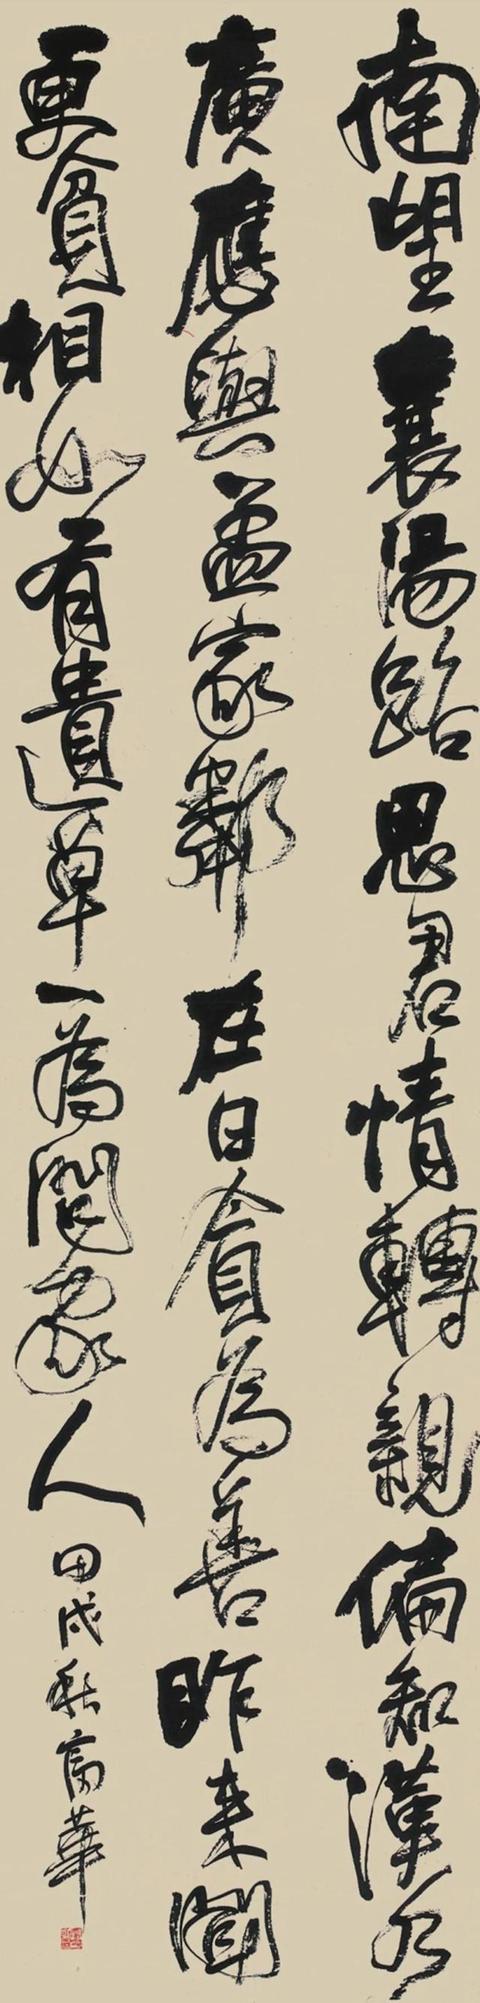 南望襄陽路思君情轉親偏知漢水
廣應與孟家鄰在日貪為善昨来聞
更貧相如有遺草一為問家人
甲戌秋高華